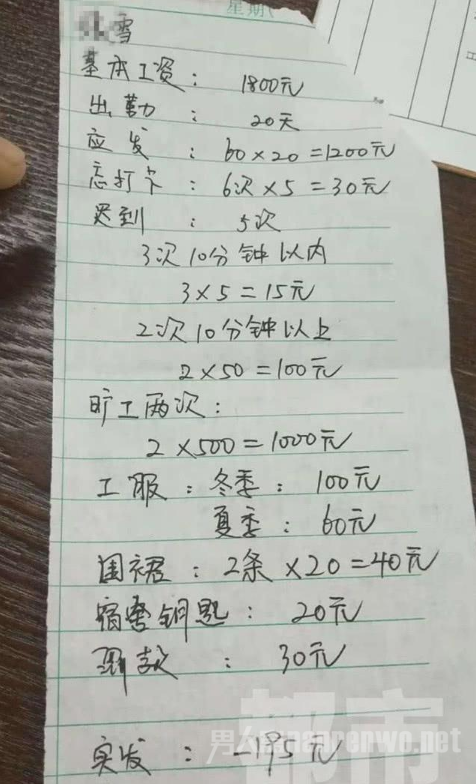 星期
雪
基本工资: 1800元
出勤: 20天
应发: 60×20=1200元
忘打卡: 6次×5=30元
迟到: 5次
3次10分钟以内
3×5=15元
2次10分钟以上
2×50=100元
旷工两次:
2×500=1000元
工服: 冬季: 100元
夏季: 60元
围裙: 2条×20=40元
宿舍钥匙: 20元
罚款: 30元
都市
实发: -195元
男人 nanrenwo.net